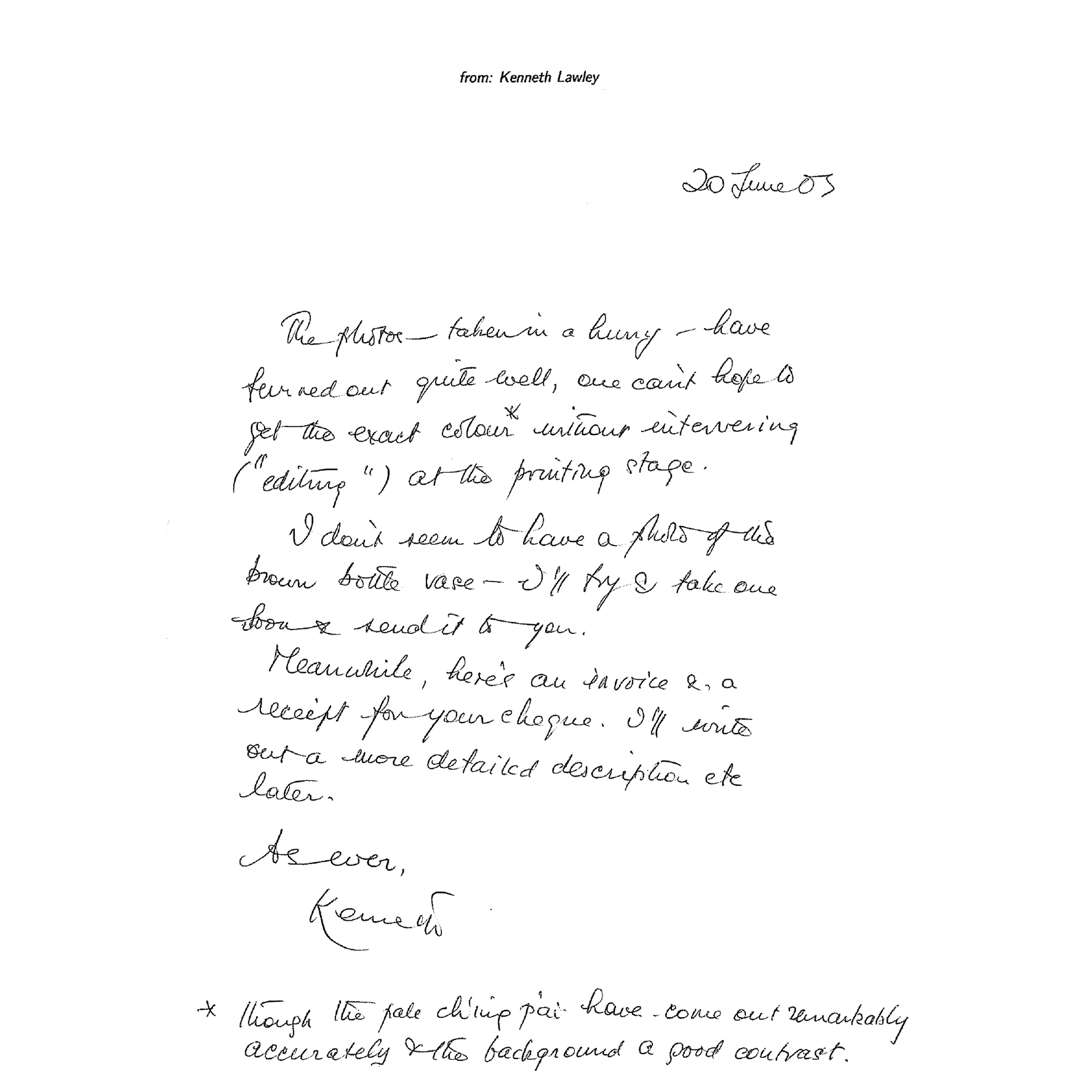 from: Kenneth Lawley
20 June 03
The photos — taken in a hurry — have
turned out quite well, one can't hope to
get the exact colour* without intervening
("editing") at the printing stage.
I don't seem to have a photo of the
brown bottle vase — I'll try & take one
soon & send it to you.
Meanwhile, here's an invoice & a
receipt for your cheque. I'll write
out a more detailed description etc
later.
As ever,
Kenneth
* though the pale ch'ing pai have come out remarkably
accurately & the background a good contrast.